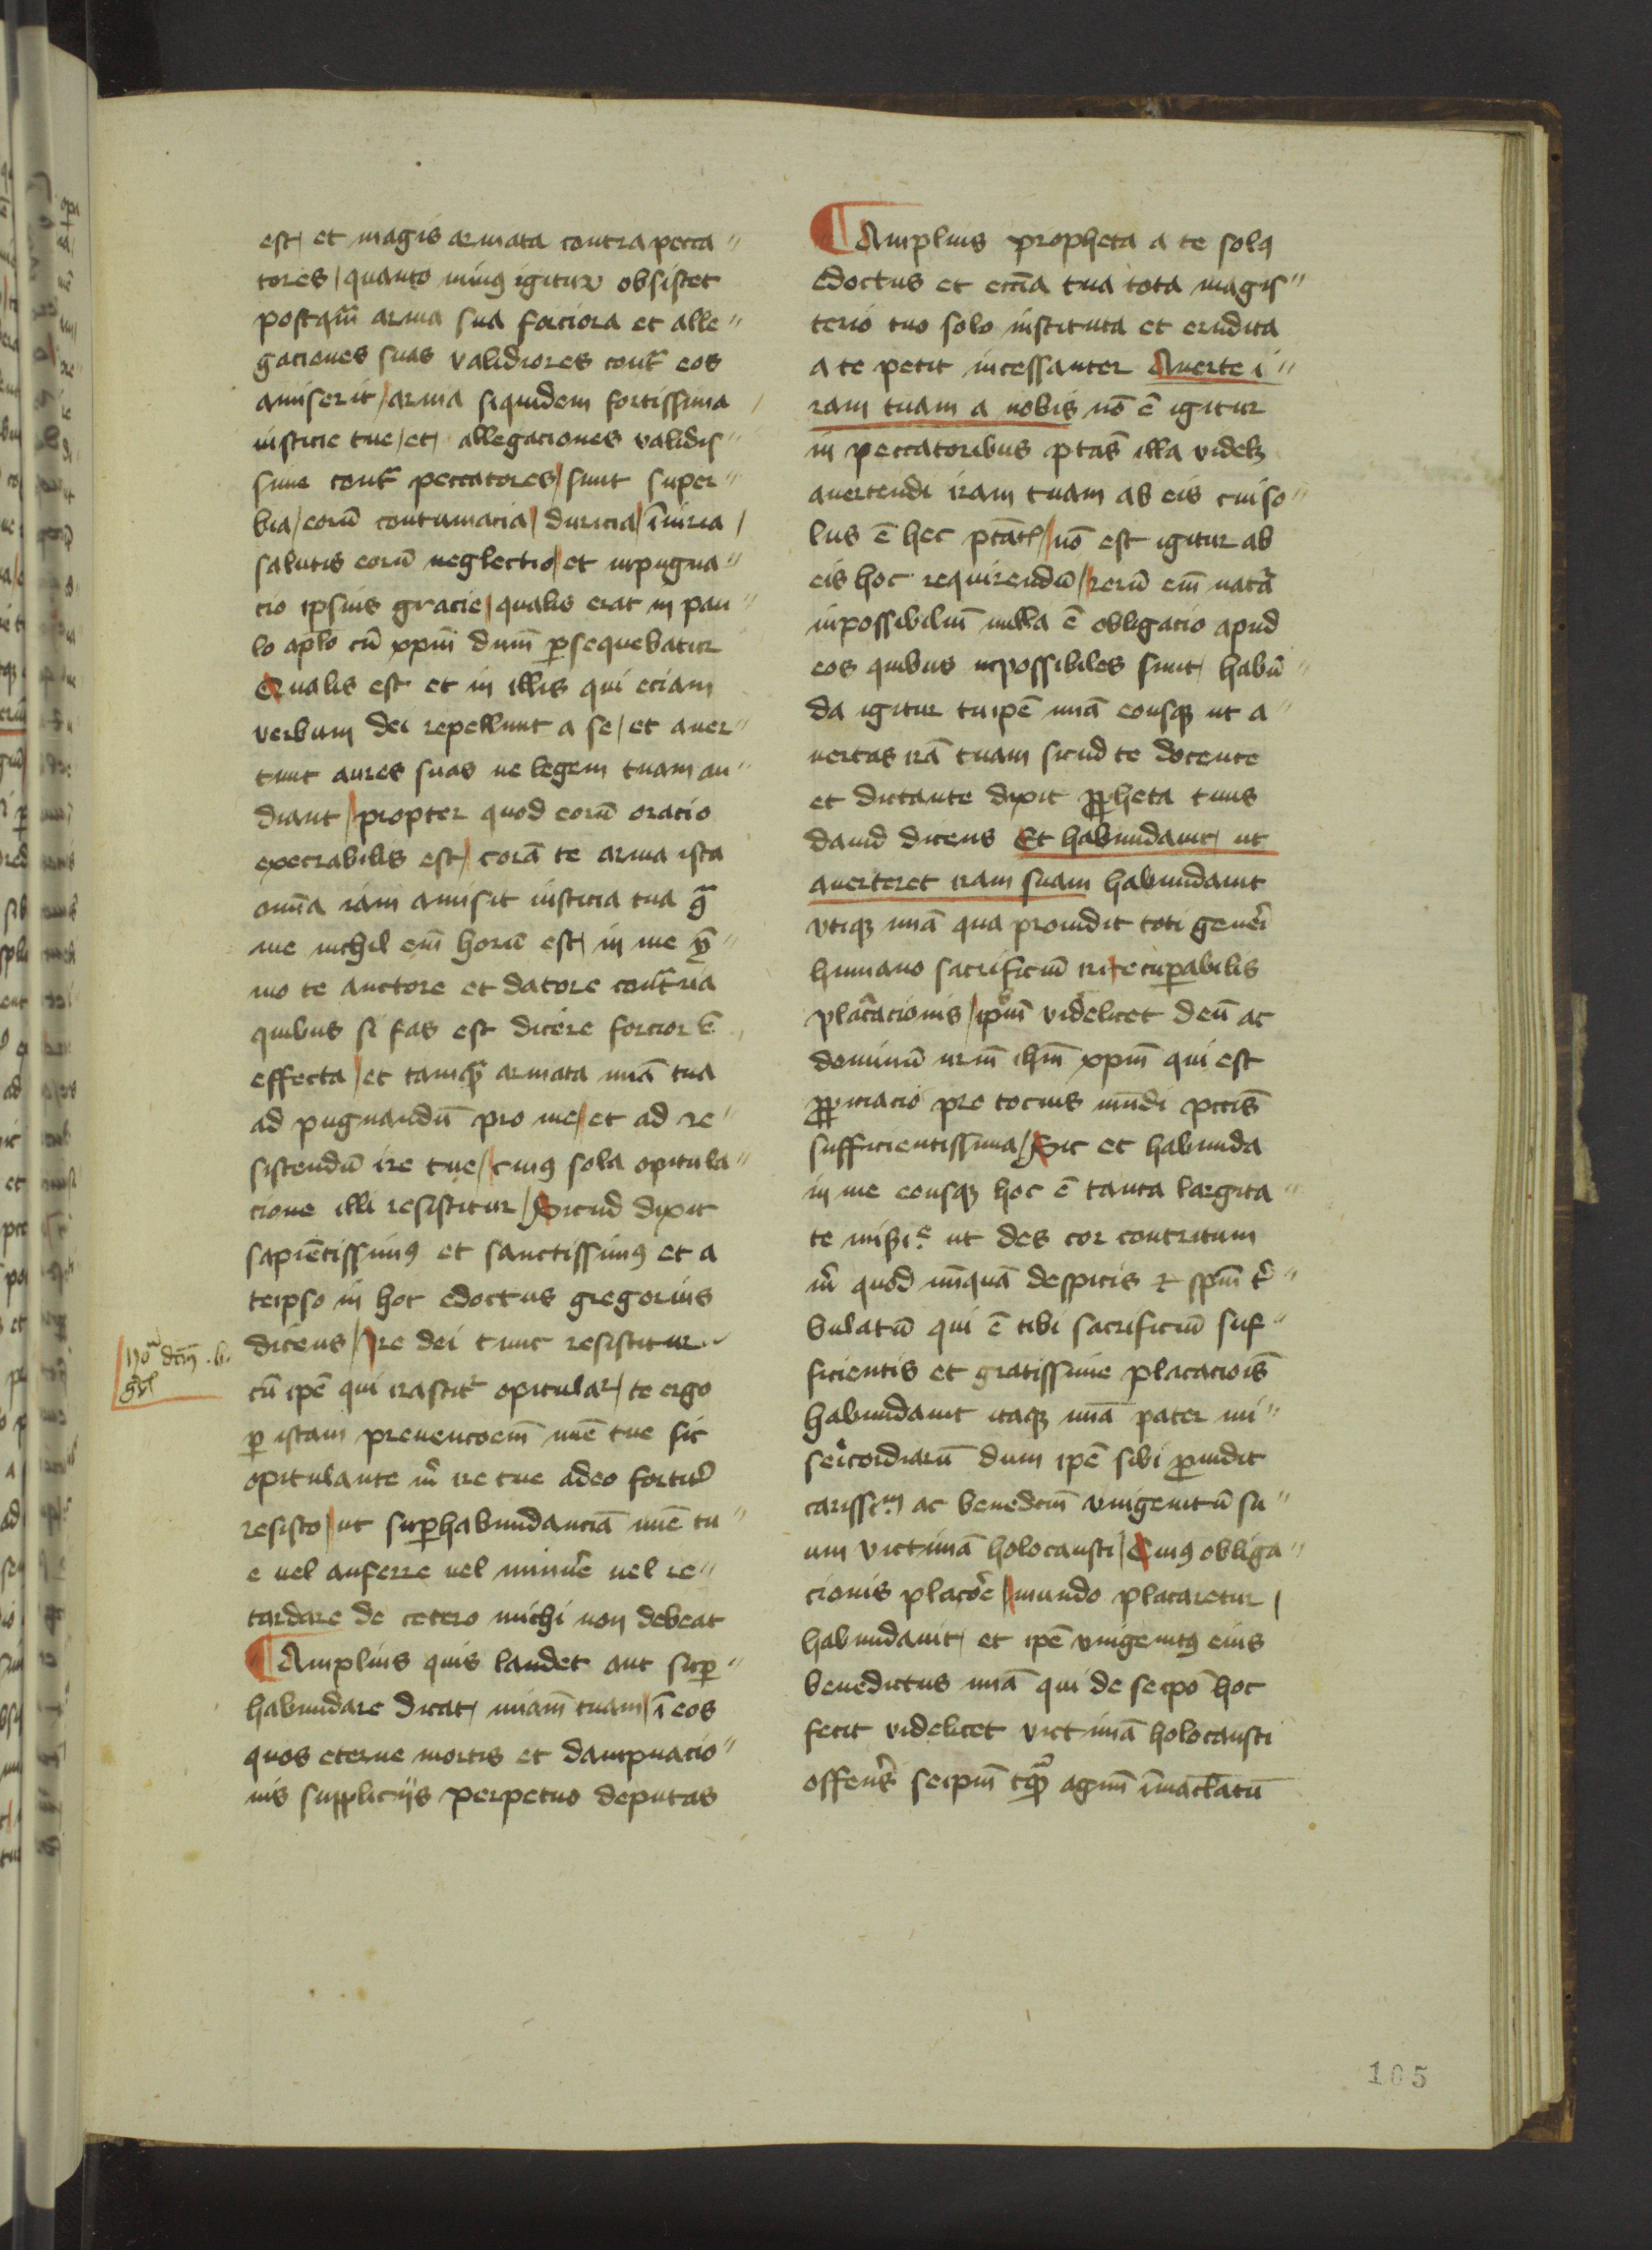 est et magis armata contra pecca"
tores / quanto minꝰ igitur obsistet
postqm̄ arma sua forciora et alle"
gaciones suas validiores cont̄ eos
amiserit / arma siquidem fortissima /
iusticie tue / et allegaciones validis"
sime cont̄ peccatores / sunt super"
bia / eorū contumacia / duricia / īniuria /
salutis eorū neglectio / et inpugna"
cio ipsius gracie / qualis erat in pau"
lo aplō cū xpm̄ dum̄ ꝑsequebatur
Qualis est et in illis qui eciam
verbum dei repellunt a se / et auer"
tunt aures suas ne legem tuam au"
diant / propter quod eorū oracio
execrabilis est / corā te arma ista
om̄ia iam amisit iusticia tua
me nichil em̄ horū est in me
mo te auctore et datore cont̄ria
quibus si fas est dicere forcior ē
effecta / et tamqᷓ armata mīa tua
ad pugnandū pro me / et ad re"
sistendū ire tue / cuiꝰ sola opitula"
cione illi resistitur / Sicud dixit
sapiētissimꝰ et sanctissimꝰ et a
teipso in hoc edoctus gregorius
dicens / Ire dei tunc resistitur
cū ipē qui irascit᷑ opitulat᷑ / te ergo
ꝑ istam preuencoem̄ mīe tue sic
opitulante m̄ ire tue adeo fortit᷑
resisto / ut suꝑhabundanciā mīe tu"
e uel auferre uel minue᷑ uel re"
tardare de cetero michi non debeat
¶ Amplius quis laudet aut suꝑ"
habundare dicat miam̄ tuam / ī eos
quos eterne mortis et dampnacio"
nis supplicijs perpetuo deputas
¶ Amplius propheta a te solꝰ
edoctus et eccīa tua tota magis"
terio tuo solo instituta et erudita
a te petit incessanter Auerte i"
ram tuam a nobis nō ē igitur
in peccatoribus ptās illa videlꝫ
auertendi iram tuam ab eis cui so"
lus ē hec / nō est igitur ab
eis hoc requirendū / rerū em̄ natᷓ
inpossibiliū nulla ē obligacio apud
eos quibus inpossibiles sunt habū"
da igitur tu ipē mīa eousqꝫ ut a"
uertas irā tuam sicud te docente
et dictante dixit ꝓpheta tuus
dauid dicens Et habundauit ut
auerteret iram suam habundauit
vtiqꝫ mīa qua prouidit toti gene᷑i
humano sacrificiū irrecuꝑabilis
placacionis / ipm̄ videlicet deū ac
dominū nrm̄ ihm̄ xpm̄ qui est
ꝓpiciacio pro tocius mundi pctīs
sufficientissima / Sic et habunda
in me eousqꝫ hoc ē tanta largita"
te ut des cor contritum
m̄ quod nūquā despicis et spm̄ t᷑i"
bulatū qui ē tibi sacrificiū suf"
ficientis et gratissime placacioīs
habundauit itaqꝫ mīa pater mi"
se᷑icordiarū dum ipē sibi ꝓuidit
carissim̄ ac benedcm̄ vnigenitū su"
um victimā holocausti / Cuiꝰ obliga"
cionis placoe᷑ / mundo placaretur /
habundauit et ipē vnigenitꝰ eius
benedictus mīa qui de seipō hoc
fecit videlicet victimā holocausti
offens᷑ seipm̄ tqᷓ agnū īmaclatū
105